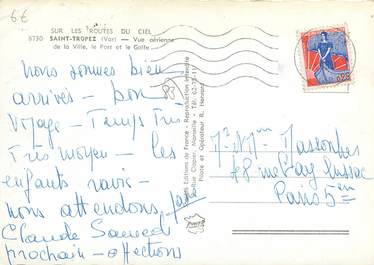 6€
SUR LES ROUTES DU CIEL
8730 SAINT-TROPEZ (Var) — Vue aérienne
de la Ville, le Port et le Golfe
nous sommes bien
arrivés - bon
voyage - Temps très
très moyen - les
enfants ravis -
nous attendons
Claude Samedi
prochain - affections
83
Editions de France - Reproduction Interdite
Rue Clapier, Marseille - Tél. 62-73-11
Pilote et Opérateur R. Henrard
0,25
48 rue Gay Lussac
Paris 5em